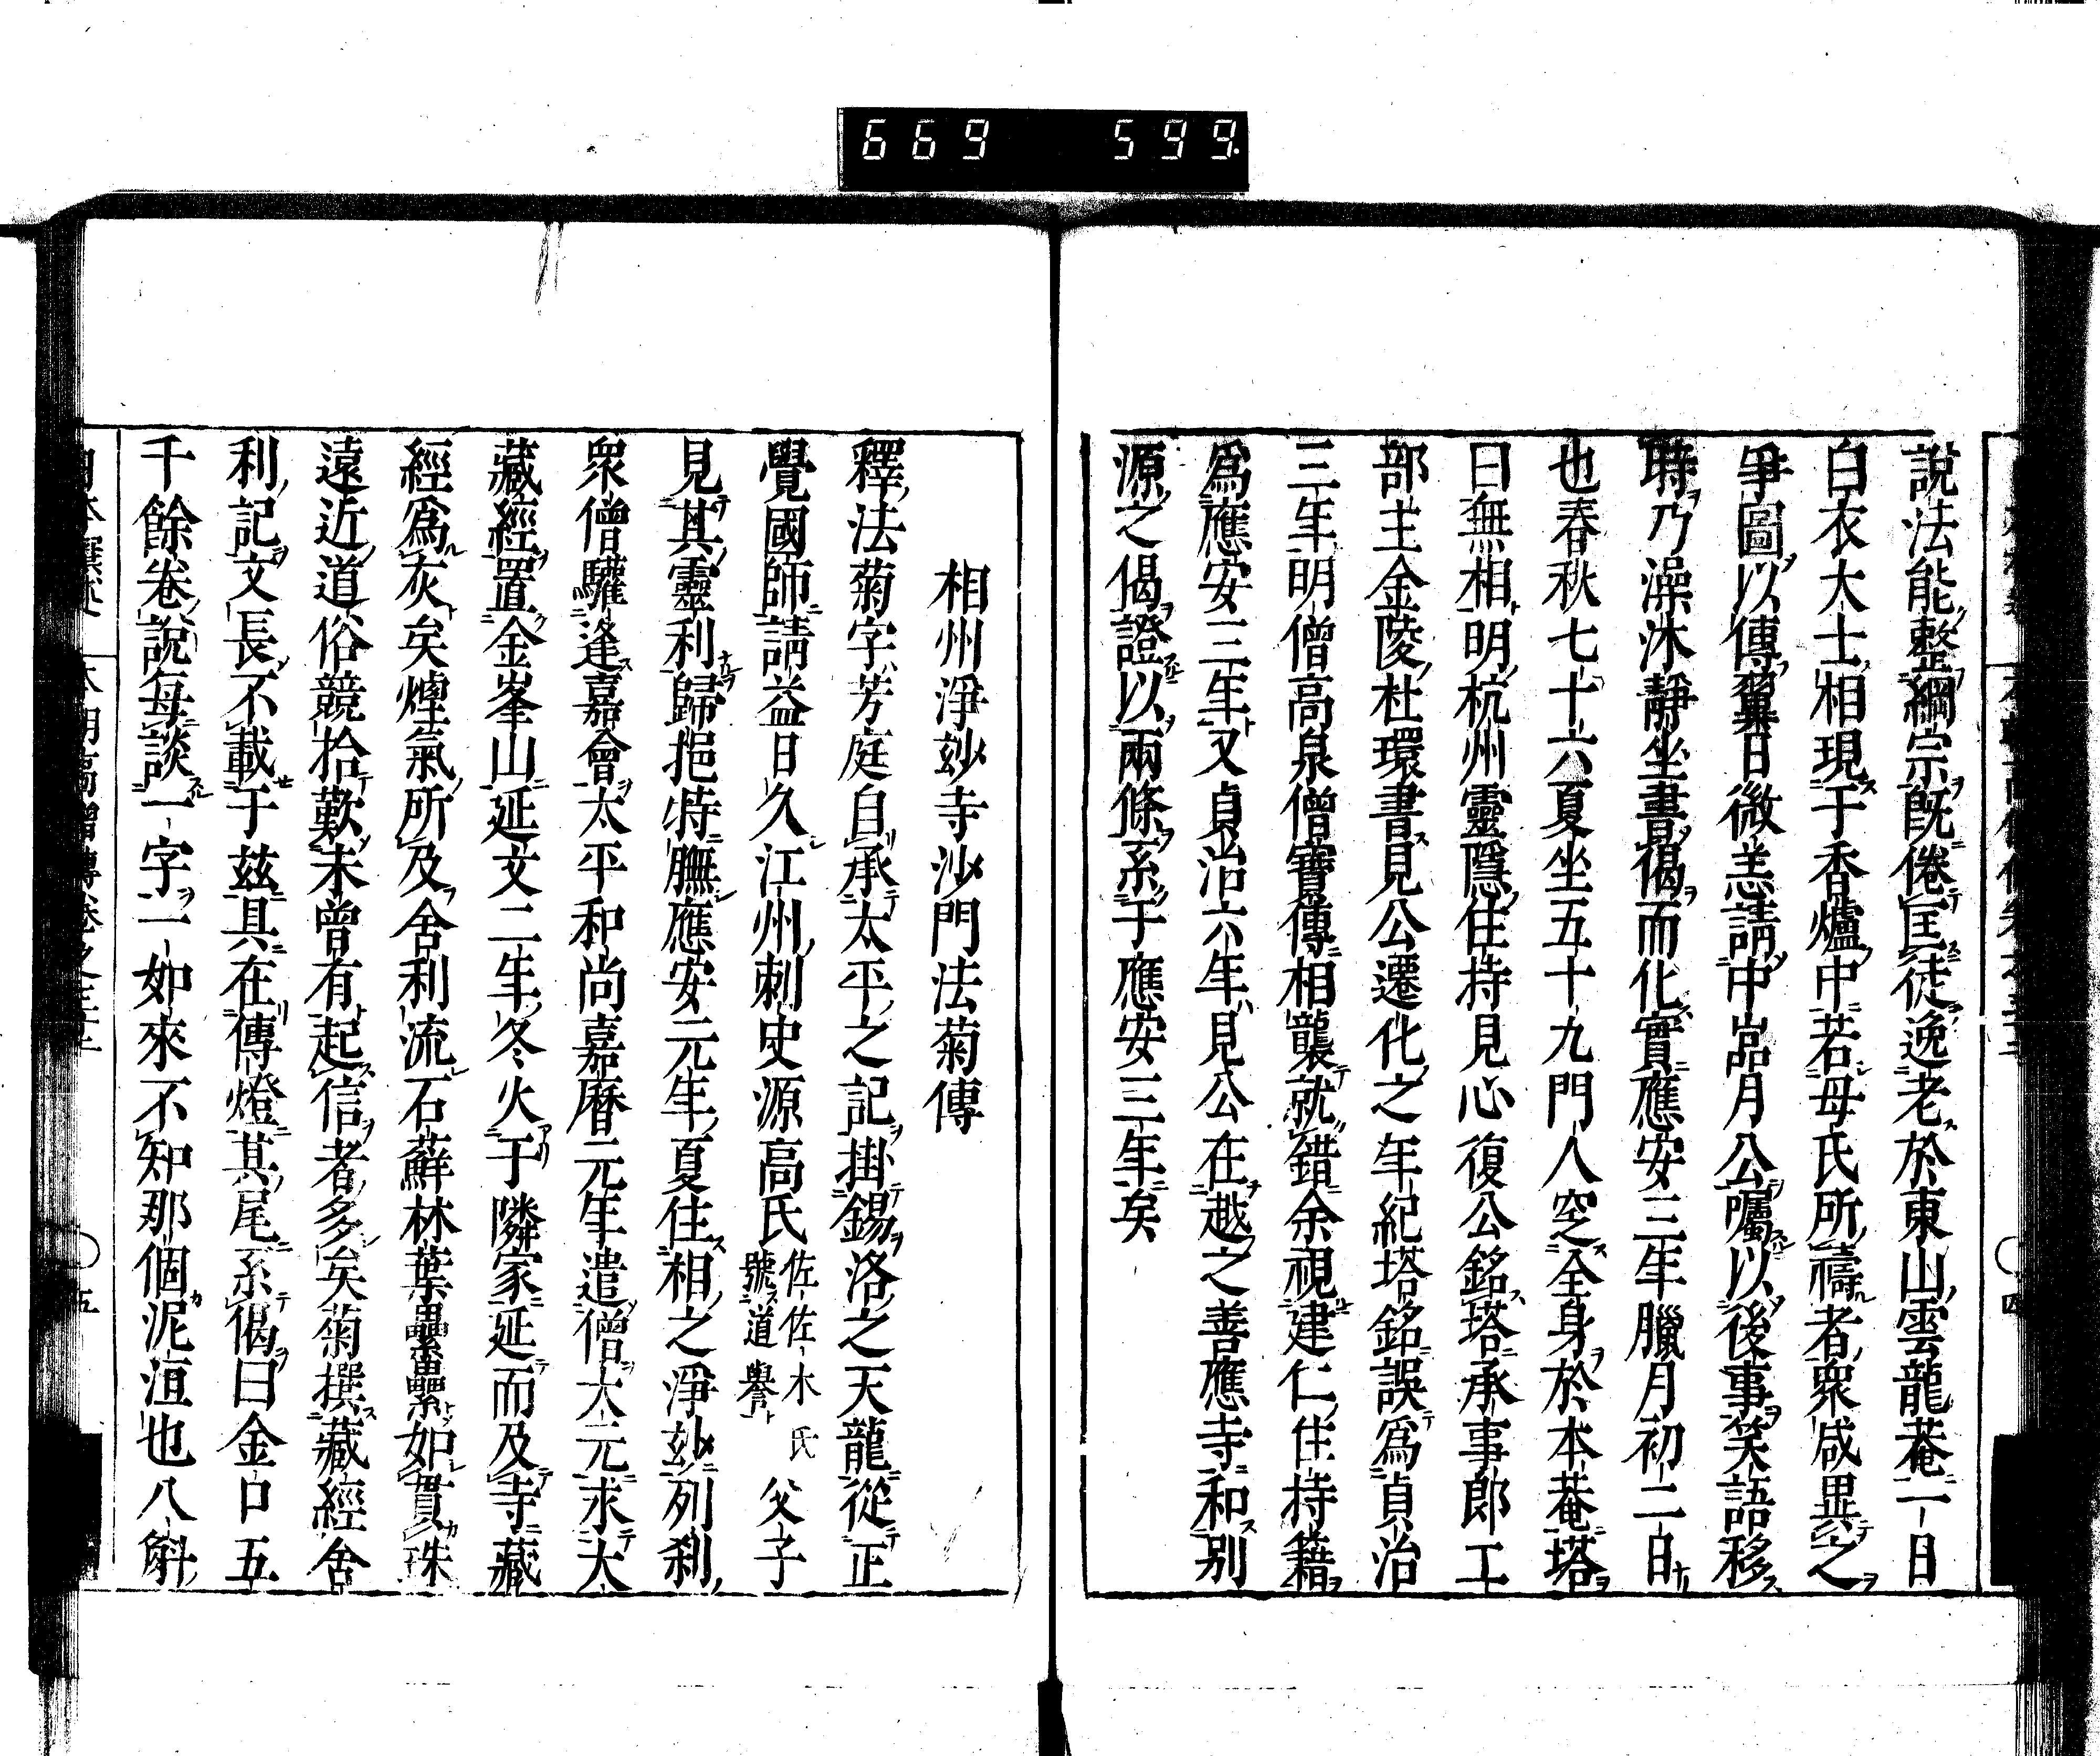 669 599.
説法能整綱宗既倦匡徒逸老於東山雲龍菴一日
白衣大士相現于香爐中若母氏所禱者衆咸異之
爭圖以傳翼日微恙請中嵓月公囑以後事笑語移
時乃澡沐靜坐書偈而化實應安三年臘月初二日
也春秋七十六夏坐五十九門人空全身於本菴塔
曰無相明杭州靈隱住持見心復公銘塔承事郎工
部主金陵杜環書見公遷化之年紀塔銘誤爲貞治
三年明僧高泉僧寶傳相襲就錯余視建仁住持籍
爲應安三年又貞治六年見公在越之善應寺和別
源之偈證以兩條系于應安三年矣
相州淨玅寺沙門法菊傳
釋法菊字芳庭自承太平之記掛錫洛之天龍從正
覺國師請益日久江州刺史源高氏佐佐木氏號道譽父子
見其靈利歸挹特膴應安元年夏住相之淨玅列刹
衆僧驩逢嘉會太平和尚嘉曆元年遣僧大元求大
藏經置金峯山延文二年冬火于隣家延而及寺藏
經爲灰矣煙氣所及舍利流石蘚林葉纍纍如貫珠
遠近道俗競拾歎未曾有起信者多矣菊撰藏經舍
利記文長不載于茲具在傳燈其尾系偈曰金口五
千餘卷説每談一字一如來不知那個泥洹也八斛